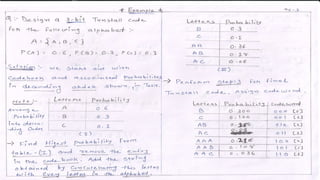 * Example *
Q: Design a 3-bit Tunstall Code
for the following alphabet :-
A = {A, B, C}
P(A) = 0.6, P(B) = 0.3, P(C) = 0.1
Solution :- we start out with
Codebook and associated Probabilities
in descending order shown in Table.
Letters Probability
A 0.6
B 0.3
C 0.1
(I)
Arrange
Probability
into descending
Order
→ Find Highest Probability from
table-(I) and remove the entry
in the code book. Add the string
obtained by Concatenating this letter
with every letter in the alphabet.
Letters Probability
B 0.3
C 0.1
AB 0.18
AC 0.06
(II)
→ Perform step for final
Tunstall code, Assign codeword.
Letters Probability Codeword
B 0.300 000
C 0.100 001
AB
AC 011
AAA
AAB 0.108 101
AAC 0.036 110